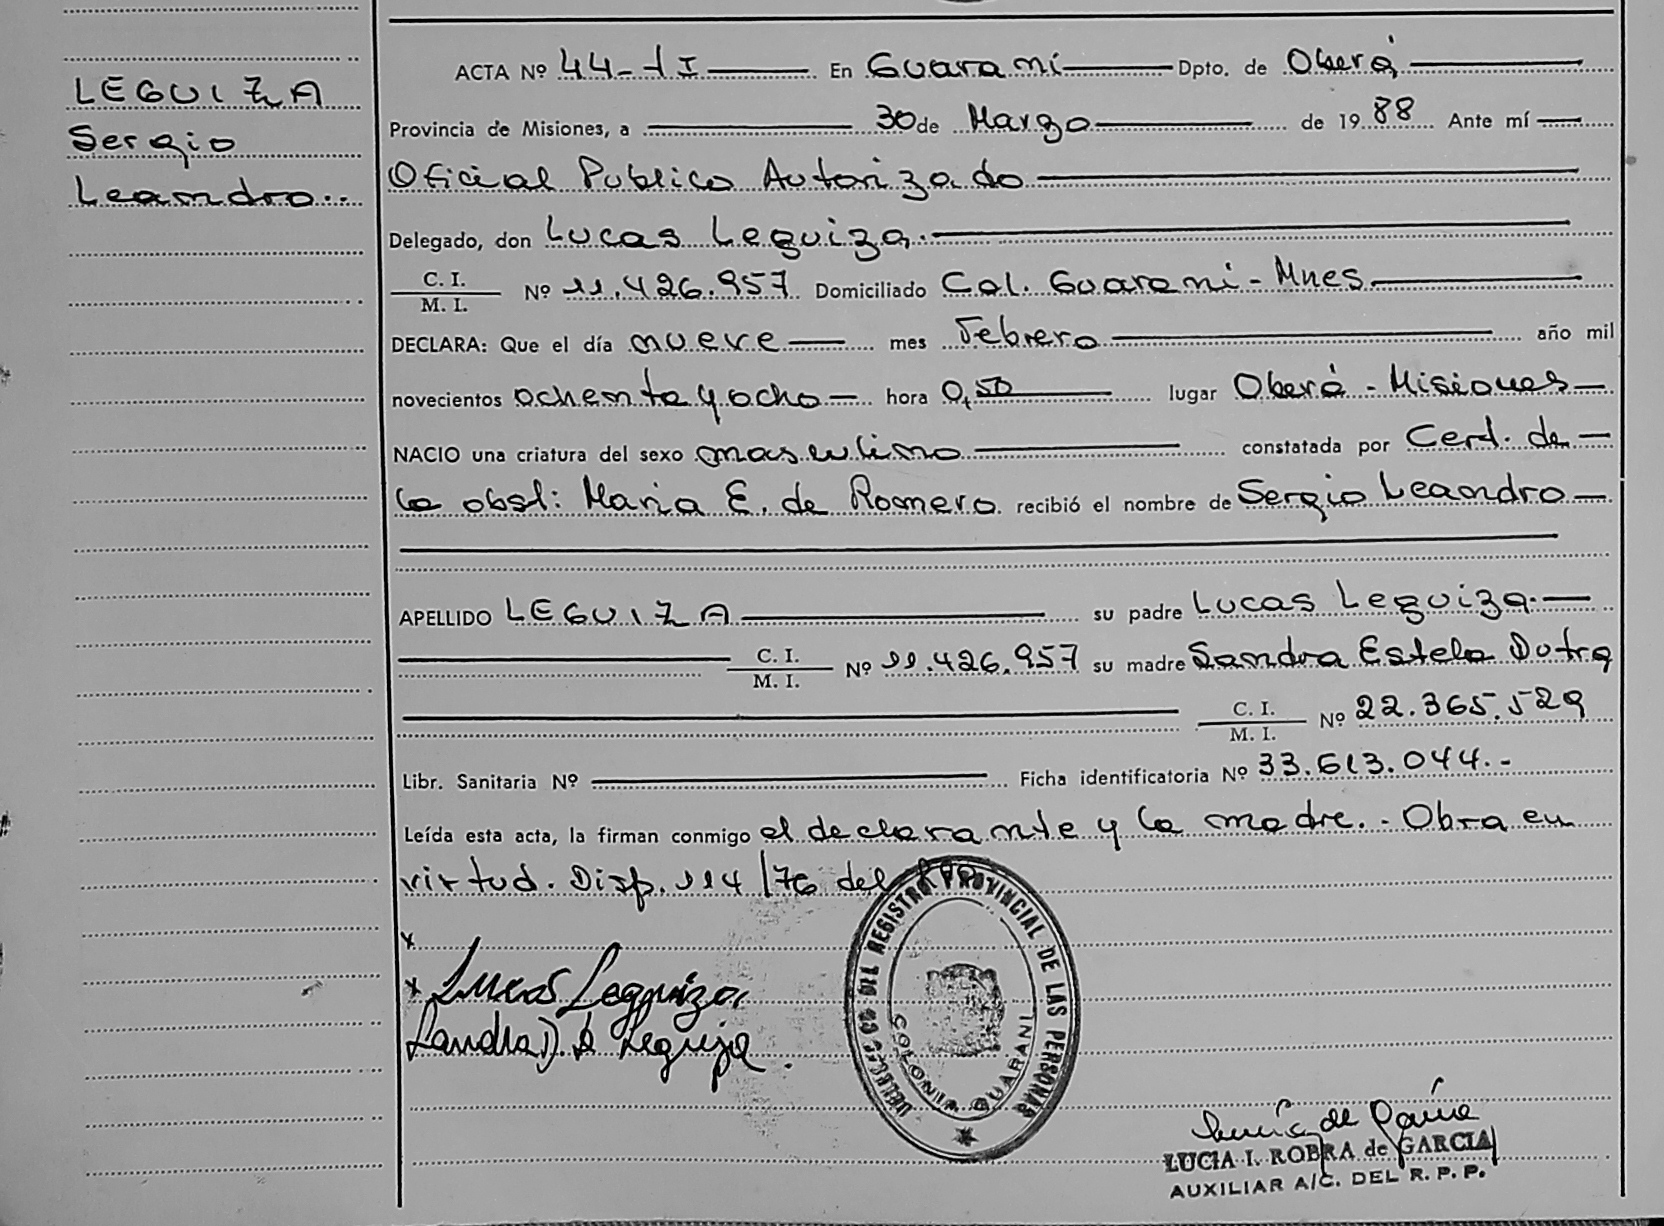 LEGUIZA
Sergio
Leandro..
ACTA Nº 44-1I En Guaraní Dpto. de Oberá
Provincia de Misiones, a 30 de Marzo de 1988 Ante mí
Oficial Publico Autorizado
Delegado, don Lucas Leguiza.
C. I.
M. I.
Nº 11.426.957 Domiciliado Col. Guaraní - Mnes
DECLARA: Que el día nueve mes Febrero año mil
novecientos ochenta y ocho hora 0,50 lugar Oberá - Misiones
NACIO una criatura del sexo masculino constatada por Cert. de
la obst: Maria E. de Romero. recibió el nombre de Sergio Leandro
APELLIDO LEGUIZA su padre Lucas Leguiza.
C. I.
M. I.
Nº 11.426.957 su madre Sandra Estela Dutra
C. I.
M. I.
Nº 22.365.529
Libr. Sanitaria Nº Ficha identificatoria Nº 33.613.044.-
Leída esta acta, la firman conmigo el declarante y la madre.- Obra en
virtud. Disp. 114/76 del
x
x Lucas Leguiza
Sandra D. de Leguiza.
DEL REGISTRO PROVINCIAL DE LAS PERSONAS
COLONIA GUARANI
LUCIA I. ROBRA de GARCIA
AUXILIAR A/C. DEL R. P. P.